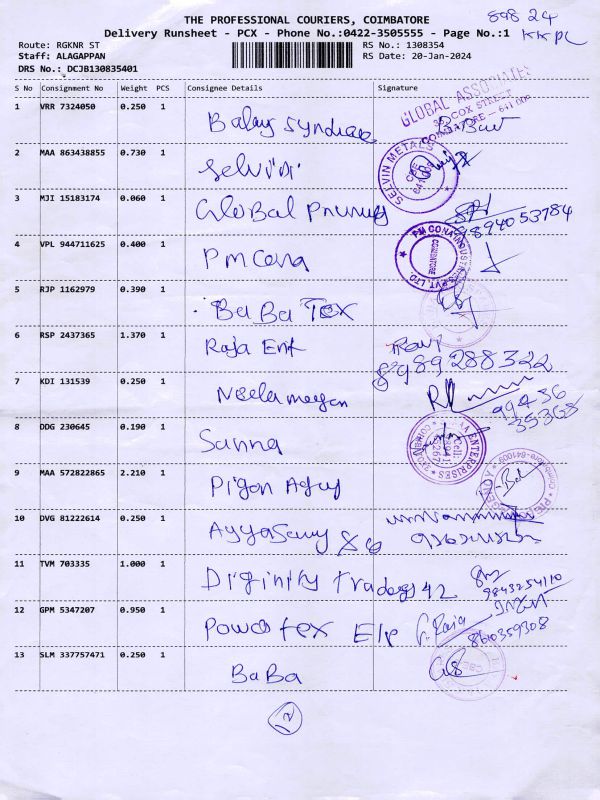 THE PROFESSIONAL COURIERS, COIMBATORE
898 24
Delivery Runsheet - PCX - Phone No.:0422-3505555 - Page No.:1
KKPL
Route: RGKNR ST
RS No.: 1308354
Staff: ALAGAPPAN
RS Date: 20-Jan-2024
DRS No.: DCJB130835401
S No Consignment No Weight PCS Consignee Details Signature
GLOBAL ASSOCIATES
COX STREET
COIMBATORE - 641 001
1 VRR 7324050 0.250 1 Balaji Syndicate
2 MAA 863438855 0.730 1 Selvin
SELVIN METALS
CBE
3 MJI 15183174 0.060 1 Global
9894053784
4 VPL 944711625 0.400 1 PM Cona
PM CONA INDUSTRIES PVT. LTD.
COIMBATORE
5 RJP 1162979 0.390 1 BaBa Tex
6 RSP 2437365 1.370 1 Raja Ent
8989288322
7 KDI 131539 0.250 1 Neela megan
99436
35368
8 DDG 230645 0.190 1 Sanna
ENTERPRISES
9 MAA 572822865 2.210 1 Pigon Agny
AGENCY
Coimbatore-641009
10 DVG 81222614 0.250 1 Ayyasamy & Co
11 TVM 703335 1.000 1 Diginity Traders 42
9843254110
12 GPM 5347207 0.950 1 Powertex E/P G. Raja
8610359308
13 SLM 337757471 0.250 1 BaBa
CBE
12